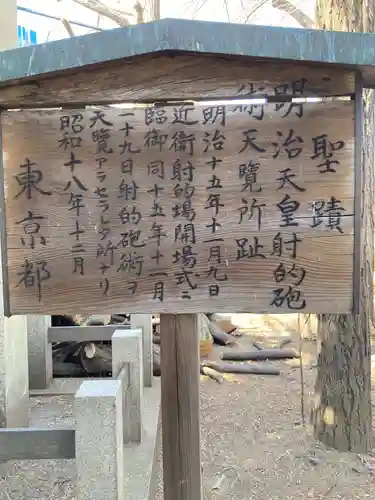 聖蹟
明治天皇射的砲
術天覽所趾
明治十五年十一月九日
近衛射的場開場式ニ
臨御同十五年十一月
二十九日射的砲術ヲ
天覽アラセラレタ所ナリ
昭和十八年十二月
東京都